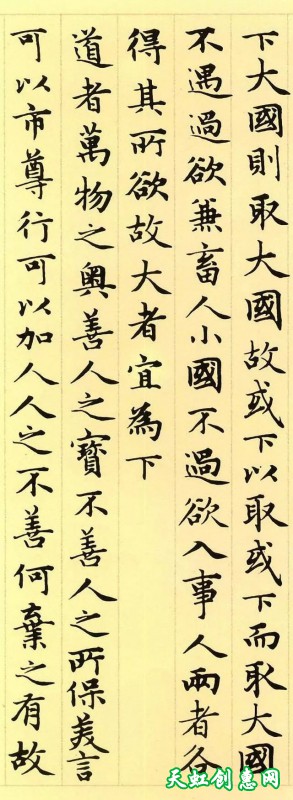 下大國則取大國故或下以取或下而取大國
不遇過欲兼畜人小國不過欲入事人兩者各
得其所欲故大者宜為下
道者萬物之奧善人之寶不善人之所保美言
可以市尊行可以加人人之不善何棄之有故
天虹创惠网